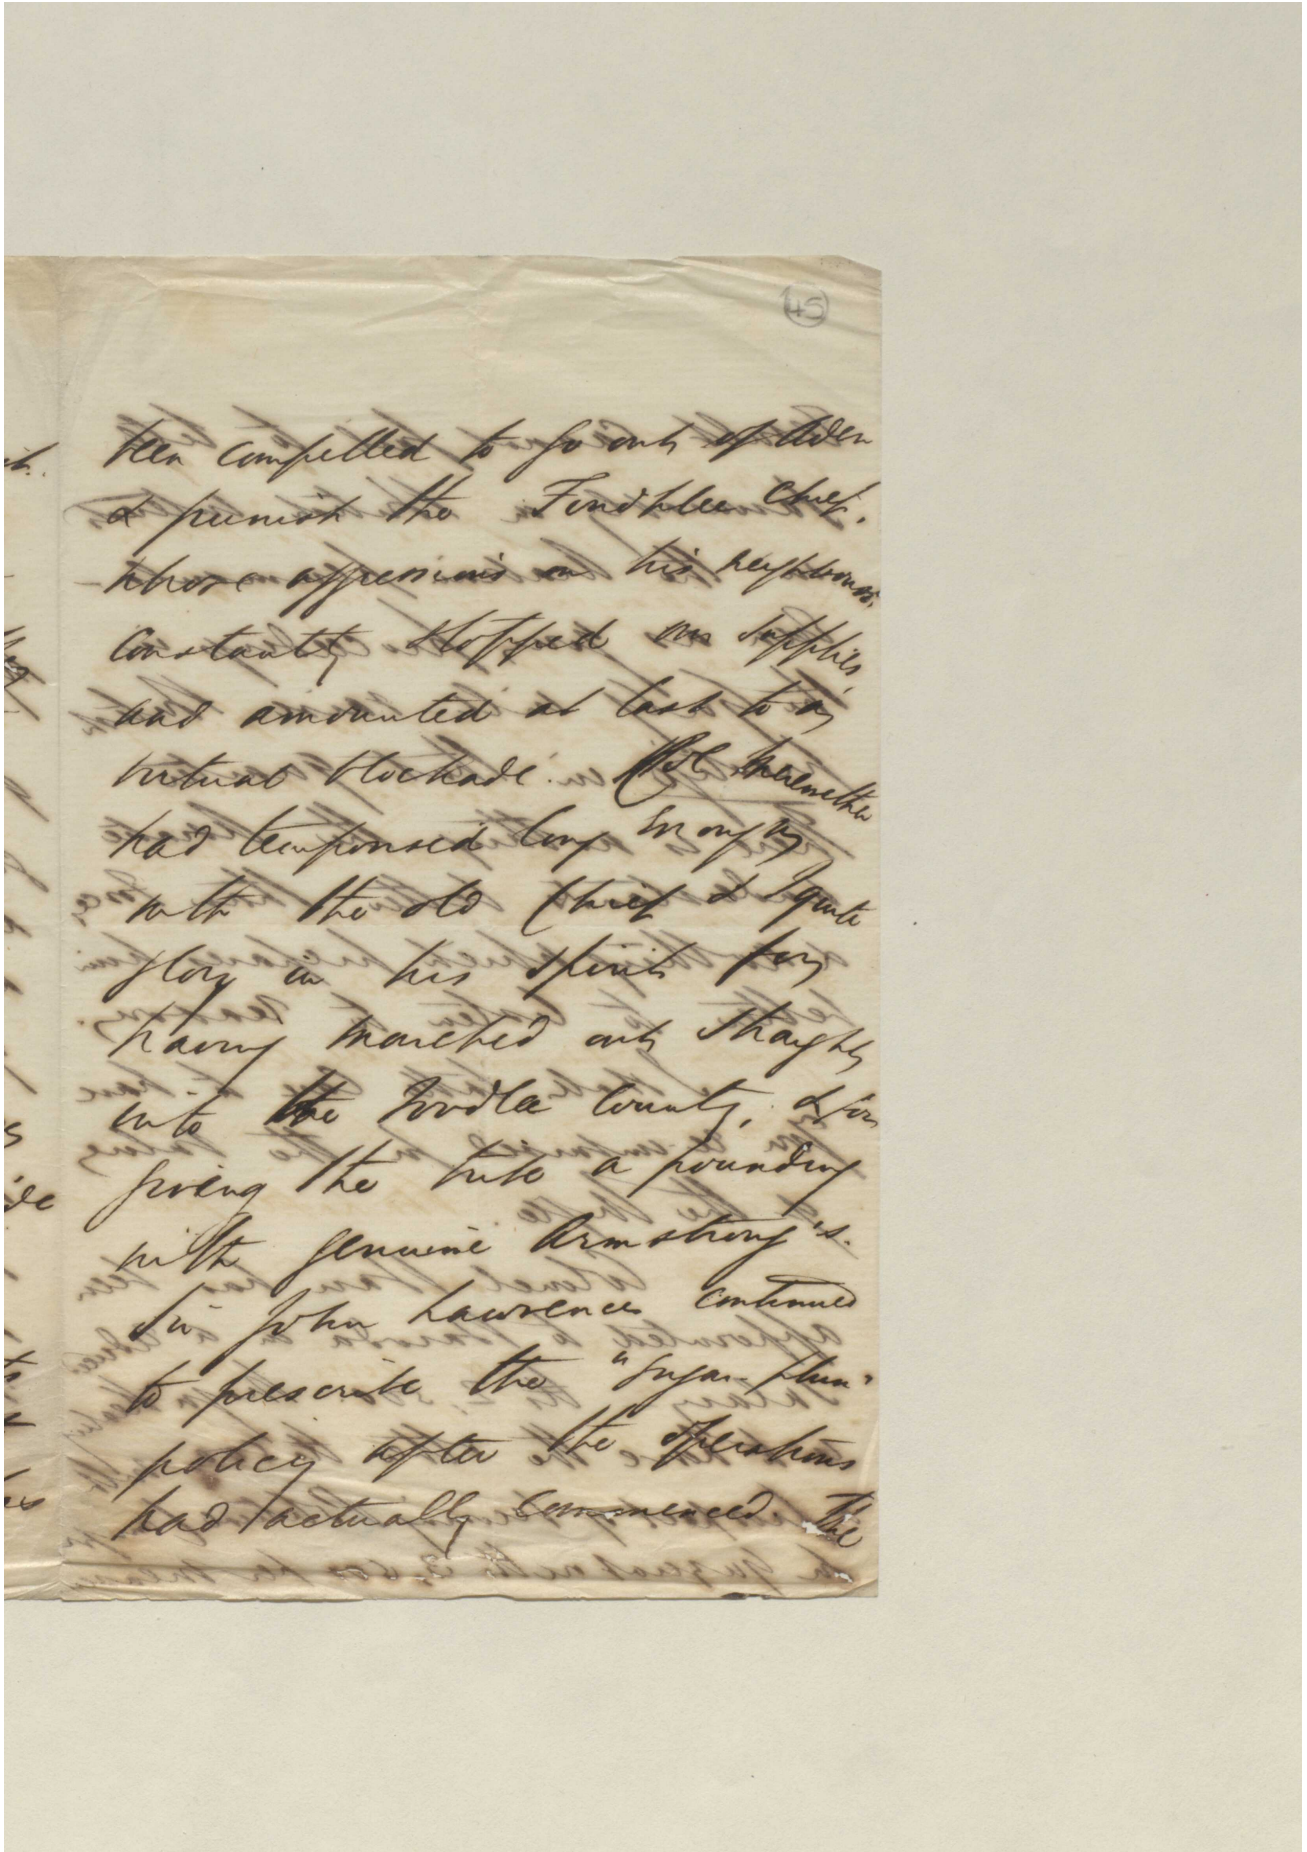 45
been compelled to go out of Aden
& punish the Foudhlee Chief,
whose aggressions on his neighbours
constantly stopped our supplies
and amounted at last to a
virtual blockade. Col Merewether
had temporised long enough
with the old Chief & I quite
glory in his spirit for
having marched out straight
into the Foudlee Country, & for
giving the tribe a pounding
with genuine Armstrong's.
Sir John Lawrence continued
to prescribe the "sugar-plum"
policy after the operations
had actually commenced. The